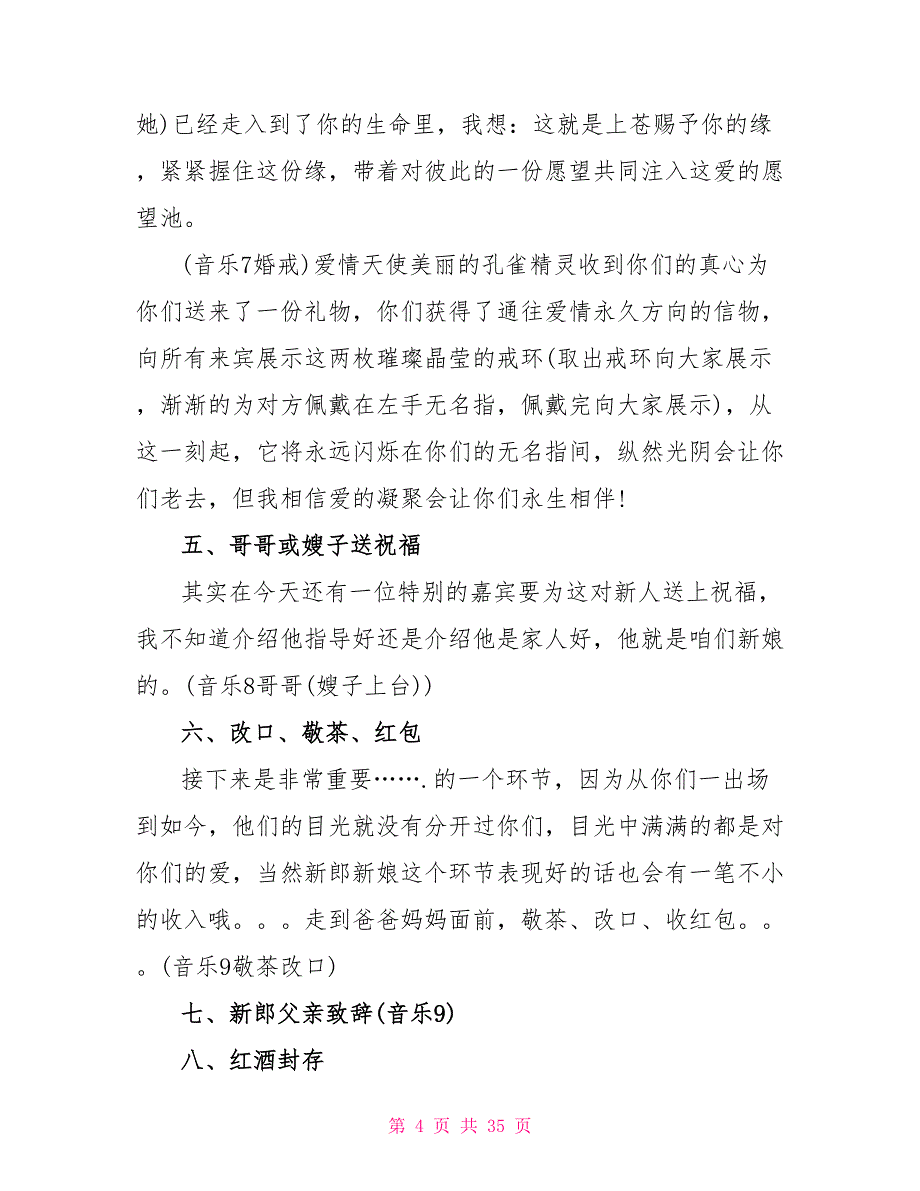 她)已经走入到了你的生命里，我想：这就是上苍赐予你的缘
，紧紧握住这份缘，带着对彼此的一份愿望共同注入这爱的愿
望池。
(音乐7婚戒)爱情天使美丽的孔雀精灵收到你们的真心为
你们送来了一份礼物，你们获得了通往爱情永久方向的信物，
向所有来宾展示这两枚璀璨晶莹的戒环(取出戒环向大家展示
，渐渐的为对方佩戴在左手无名指，佩戴完向大家展示)，从
这一刻起，它将永远闪烁在你们的无名指间，纵然光阴会让你
们老去，但我相信爱的凝聚会让你们永生相伴!
五、哥哥或嫂子送祝福
其实在今天还有一位特别的嘉宾要为这对新人送上祝福，
我不知道介绍他指导好还是介绍他是家人好，他就是咱们新娘
的。(音乐8哥哥(嫂子上台))
六、改口、敬茶、红包
接下来是非常重要…….的一个环节，因为从你们一出场
到如今，他们的目光就没有分开过你们，目光中满满的都是对
你们的爱，当然新郎新娘这个环节表现好的话也会有一笔不小
的收入哦。。。走到爸爸妈妈面前，敬茶、改口、收红包。。
。(音乐9敬茶改口)
七、新郎父亲致辞(音乐9)
八、红酒封存
第 4 页 共 35 页